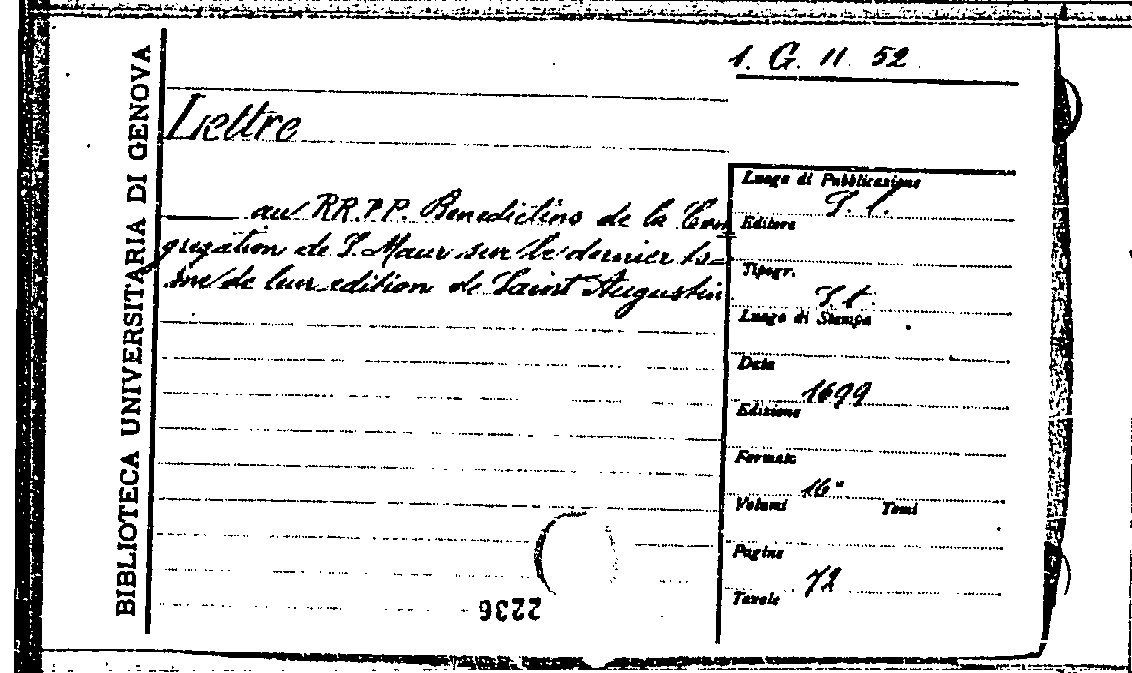 1. G. II. 52
BIBLIOTECA UNIVERSITARIA DI GENOVA
Lettre
au RR.PP. Benedictins de la Con
grégation de S. Maur sur le dernier to=
me de leur edition de Saint Augustin
Luogo di Pubblicazione
S. l.
Editore
Tipogr.
S. t.
Luogo di Stampa
Data
1699
Edizione
Formato
16°
Volumi Tomi
Pagine
72
Tavole
2236